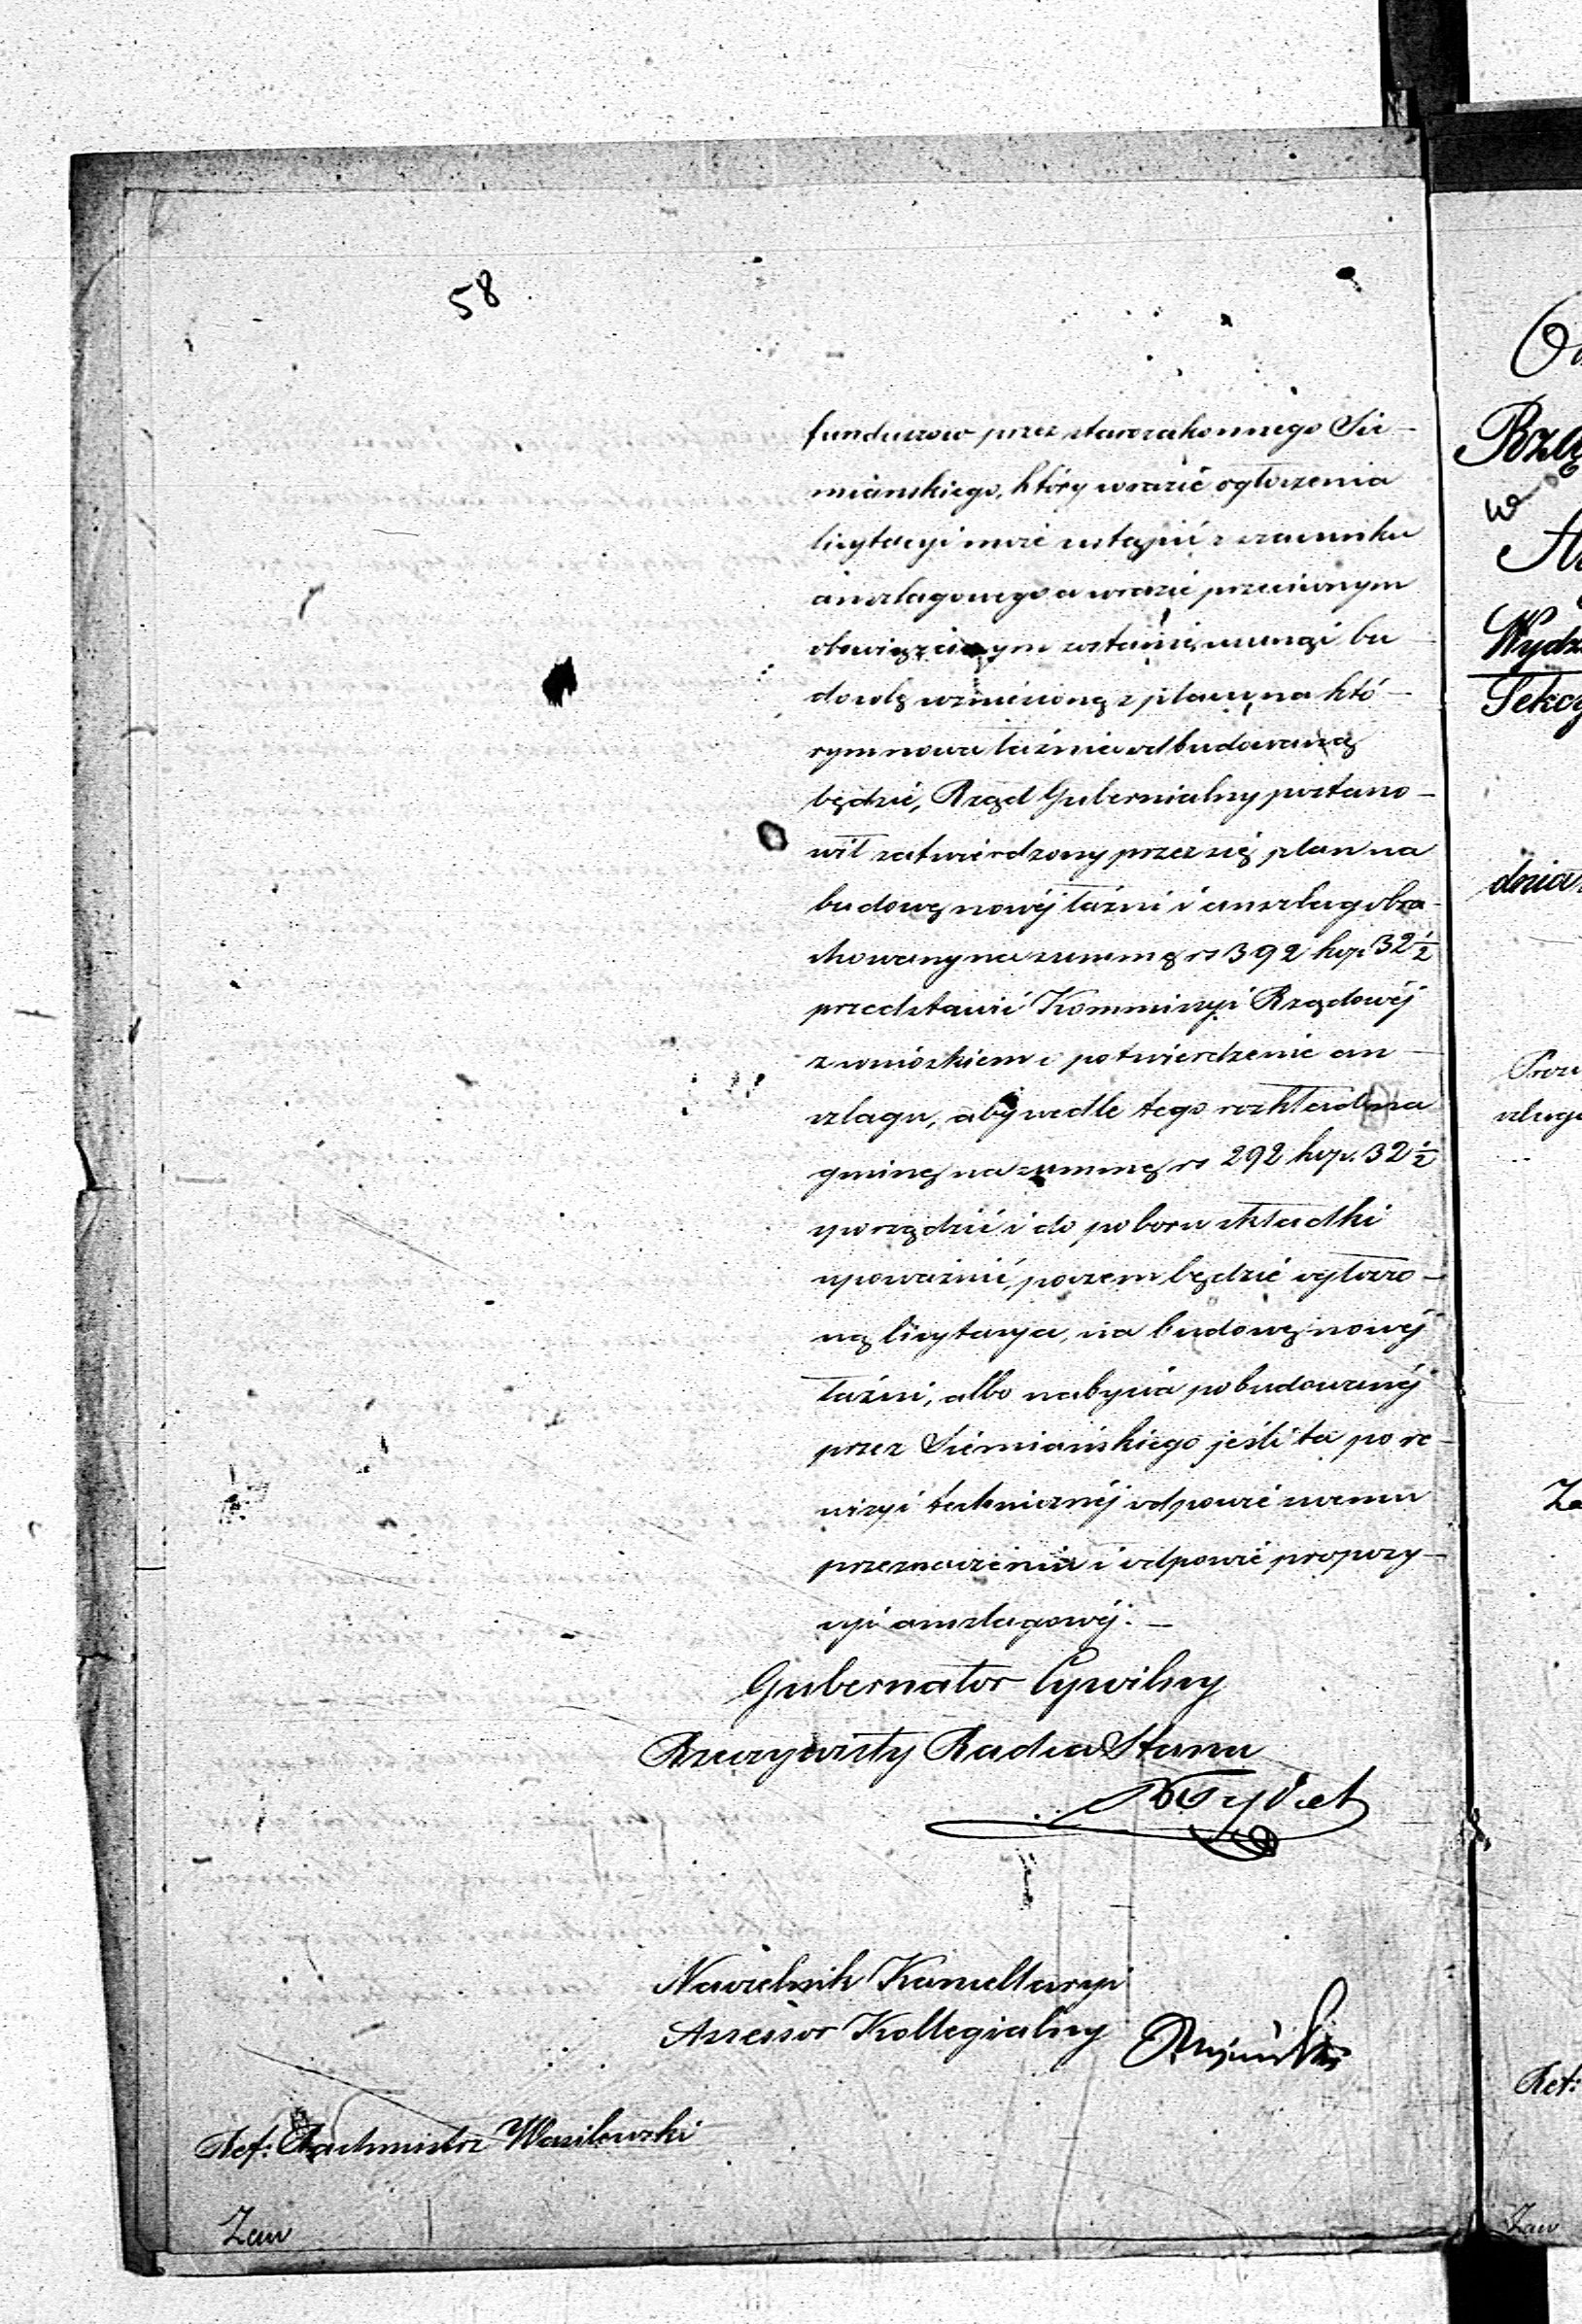 58
funduszow przez starozakonnego Sie-
miańskiego, który w razie ogłoszenia
licytacyi może ustąpić z szacunku
anszlagowego a w razie przeciwnym
obowiązanym zostanie usunąć bu
dowlę wzniesioną z placu, na któ-
rym nowa łaźnia odbudowaną
będzie, Rząd Gubernialny postano-
wił zatwierdzony przez się plan na
budowę nowéj łaźni i anszlag obra-
chowany na summę rs 392 kop. 32½
przedstawić Kommissyi Rządowéj
z wnioskiem o potwierdzenie an-
szlagu, aby wedle tego rozkład na
gminę na summę rs 292 kop. 32½
sporządzić i do poboru składki
upoważnić, poczem będzie ogłoszo-
ną licytacya, na budowę nowéj
łaźni, albo nabycia pobudowanéj
przez Siemiańskiego jeśli ta po re-
wizyi technicznéj odpowie swemu
przeznaczeniu i odpowie propozy-
cyi anszlagowéj. —
Gubernator Cywilny
Rzeczywisty Radca Stanu
Naczelnik Kancellaryi
Assessor Kollegialny
Ref: Rachmistrz Wasilewski
Zaw
Rzą
w
Wydz
Sekcy
dnia
szlagu
Za
Ref:
Zaw